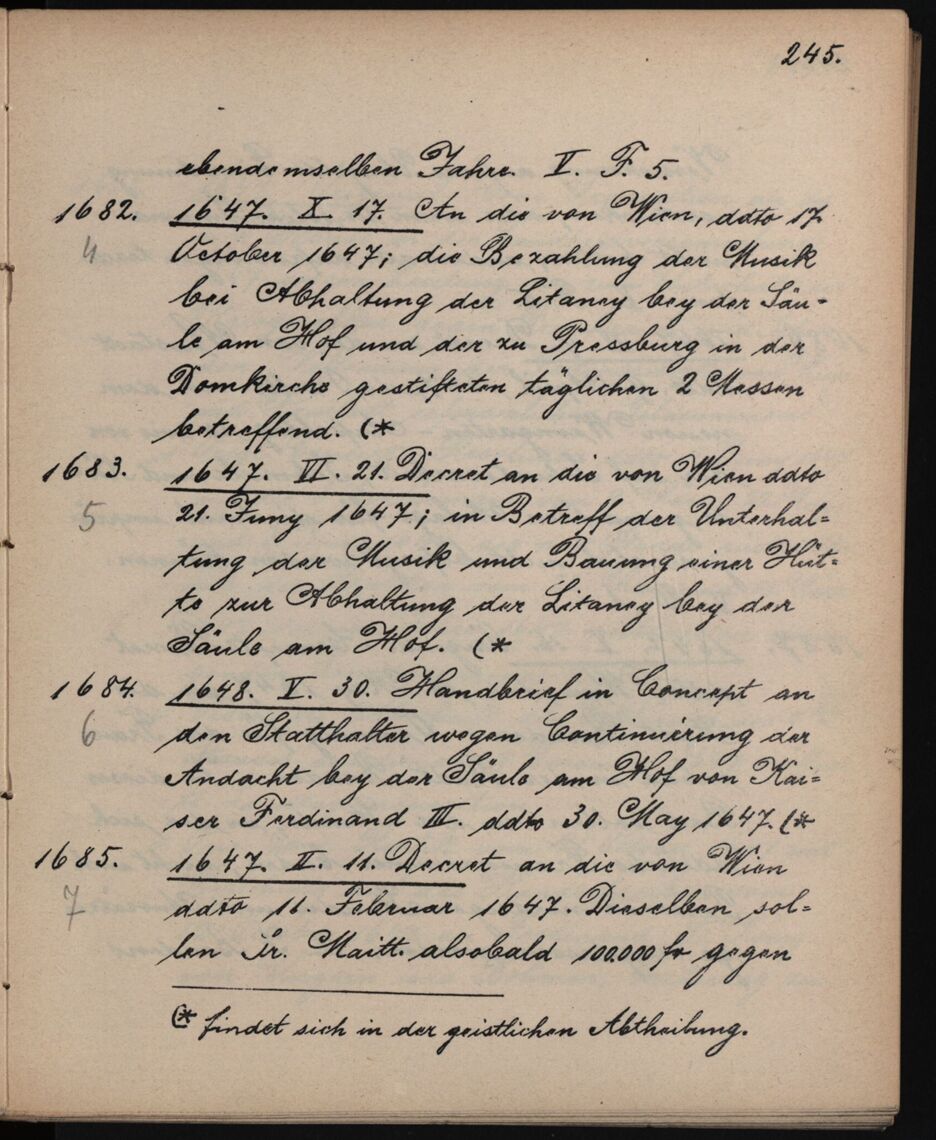 245.
ebendemselben Jahre. V. F. 5.
1682. 1647. X. 17. An die von Wien, ddto 17.
4 October 1647; die Bezahlung der Musik
bei Abhaltung der Litaney bey der Säu-
le am Hof und der zu Pressburg in der
Domkirche gestifteten täglichen 2 Messen
betreffend. (*
1683. 1647. VI. 21. Decret an die von Wien ddto
5 21. Juny 1647; in Betreff der Unterhal=
tung der Musik und Bauung einer Hüt=
te zur Abhaltung der Litaney bey der
Säule am Hof. (*
1684. 1648. V. 30. Handbrief in Concept an
6 den Statthalter wegen Continuierung der
Andacht bey der Säule am Hof von Kai=
ser Ferdinand III. ddto 30. May 1647. (*
1685. 1647. II. 11. Decret an die von Wien
7 ddto 11. Februar 1647. Dieselben sol=
len Ir. Maitt. alsobald 100.000 fr gegen
(* findet sich in der geistlichen Abtheilung.